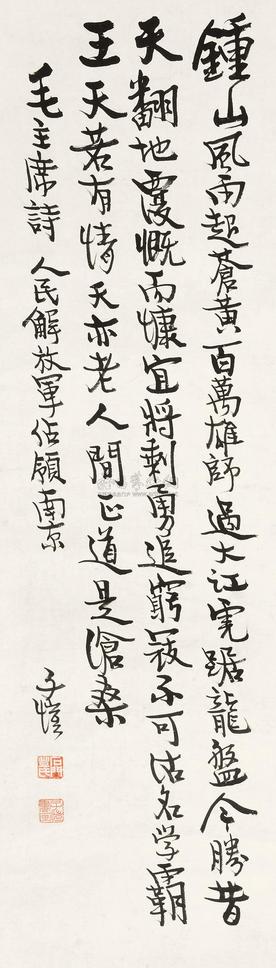 鍾山風雨起蒼黃百萬雄師過大江虎踞龍盤今勝昔
天翻地覆慨而慷宜將剩勇追窮寇不可沽名学霸
王天若有情天亦老人間正道是滄桑
毛主席詩 人民解放軍佔領南京
子愷